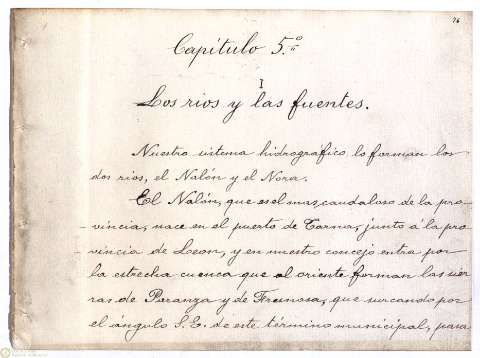 76
Capítulo 5.º
I
Los rios y las fuentes.
Nuestro sistema hidrografico lo forman los
dos rios, el Nalón y el Nora.
El Nalón, que es el mas caudaloso de la pro-
vincia, nace en el puerto de Tarna, junto á la pro-
vincia de Leon, y en nuestro concejo entra por
la estrecha cuenca que al oriente forman las sier-
ras de Peranza y de Fresnosa, que surcando por
el ángulo S.E. de este término municipal, para